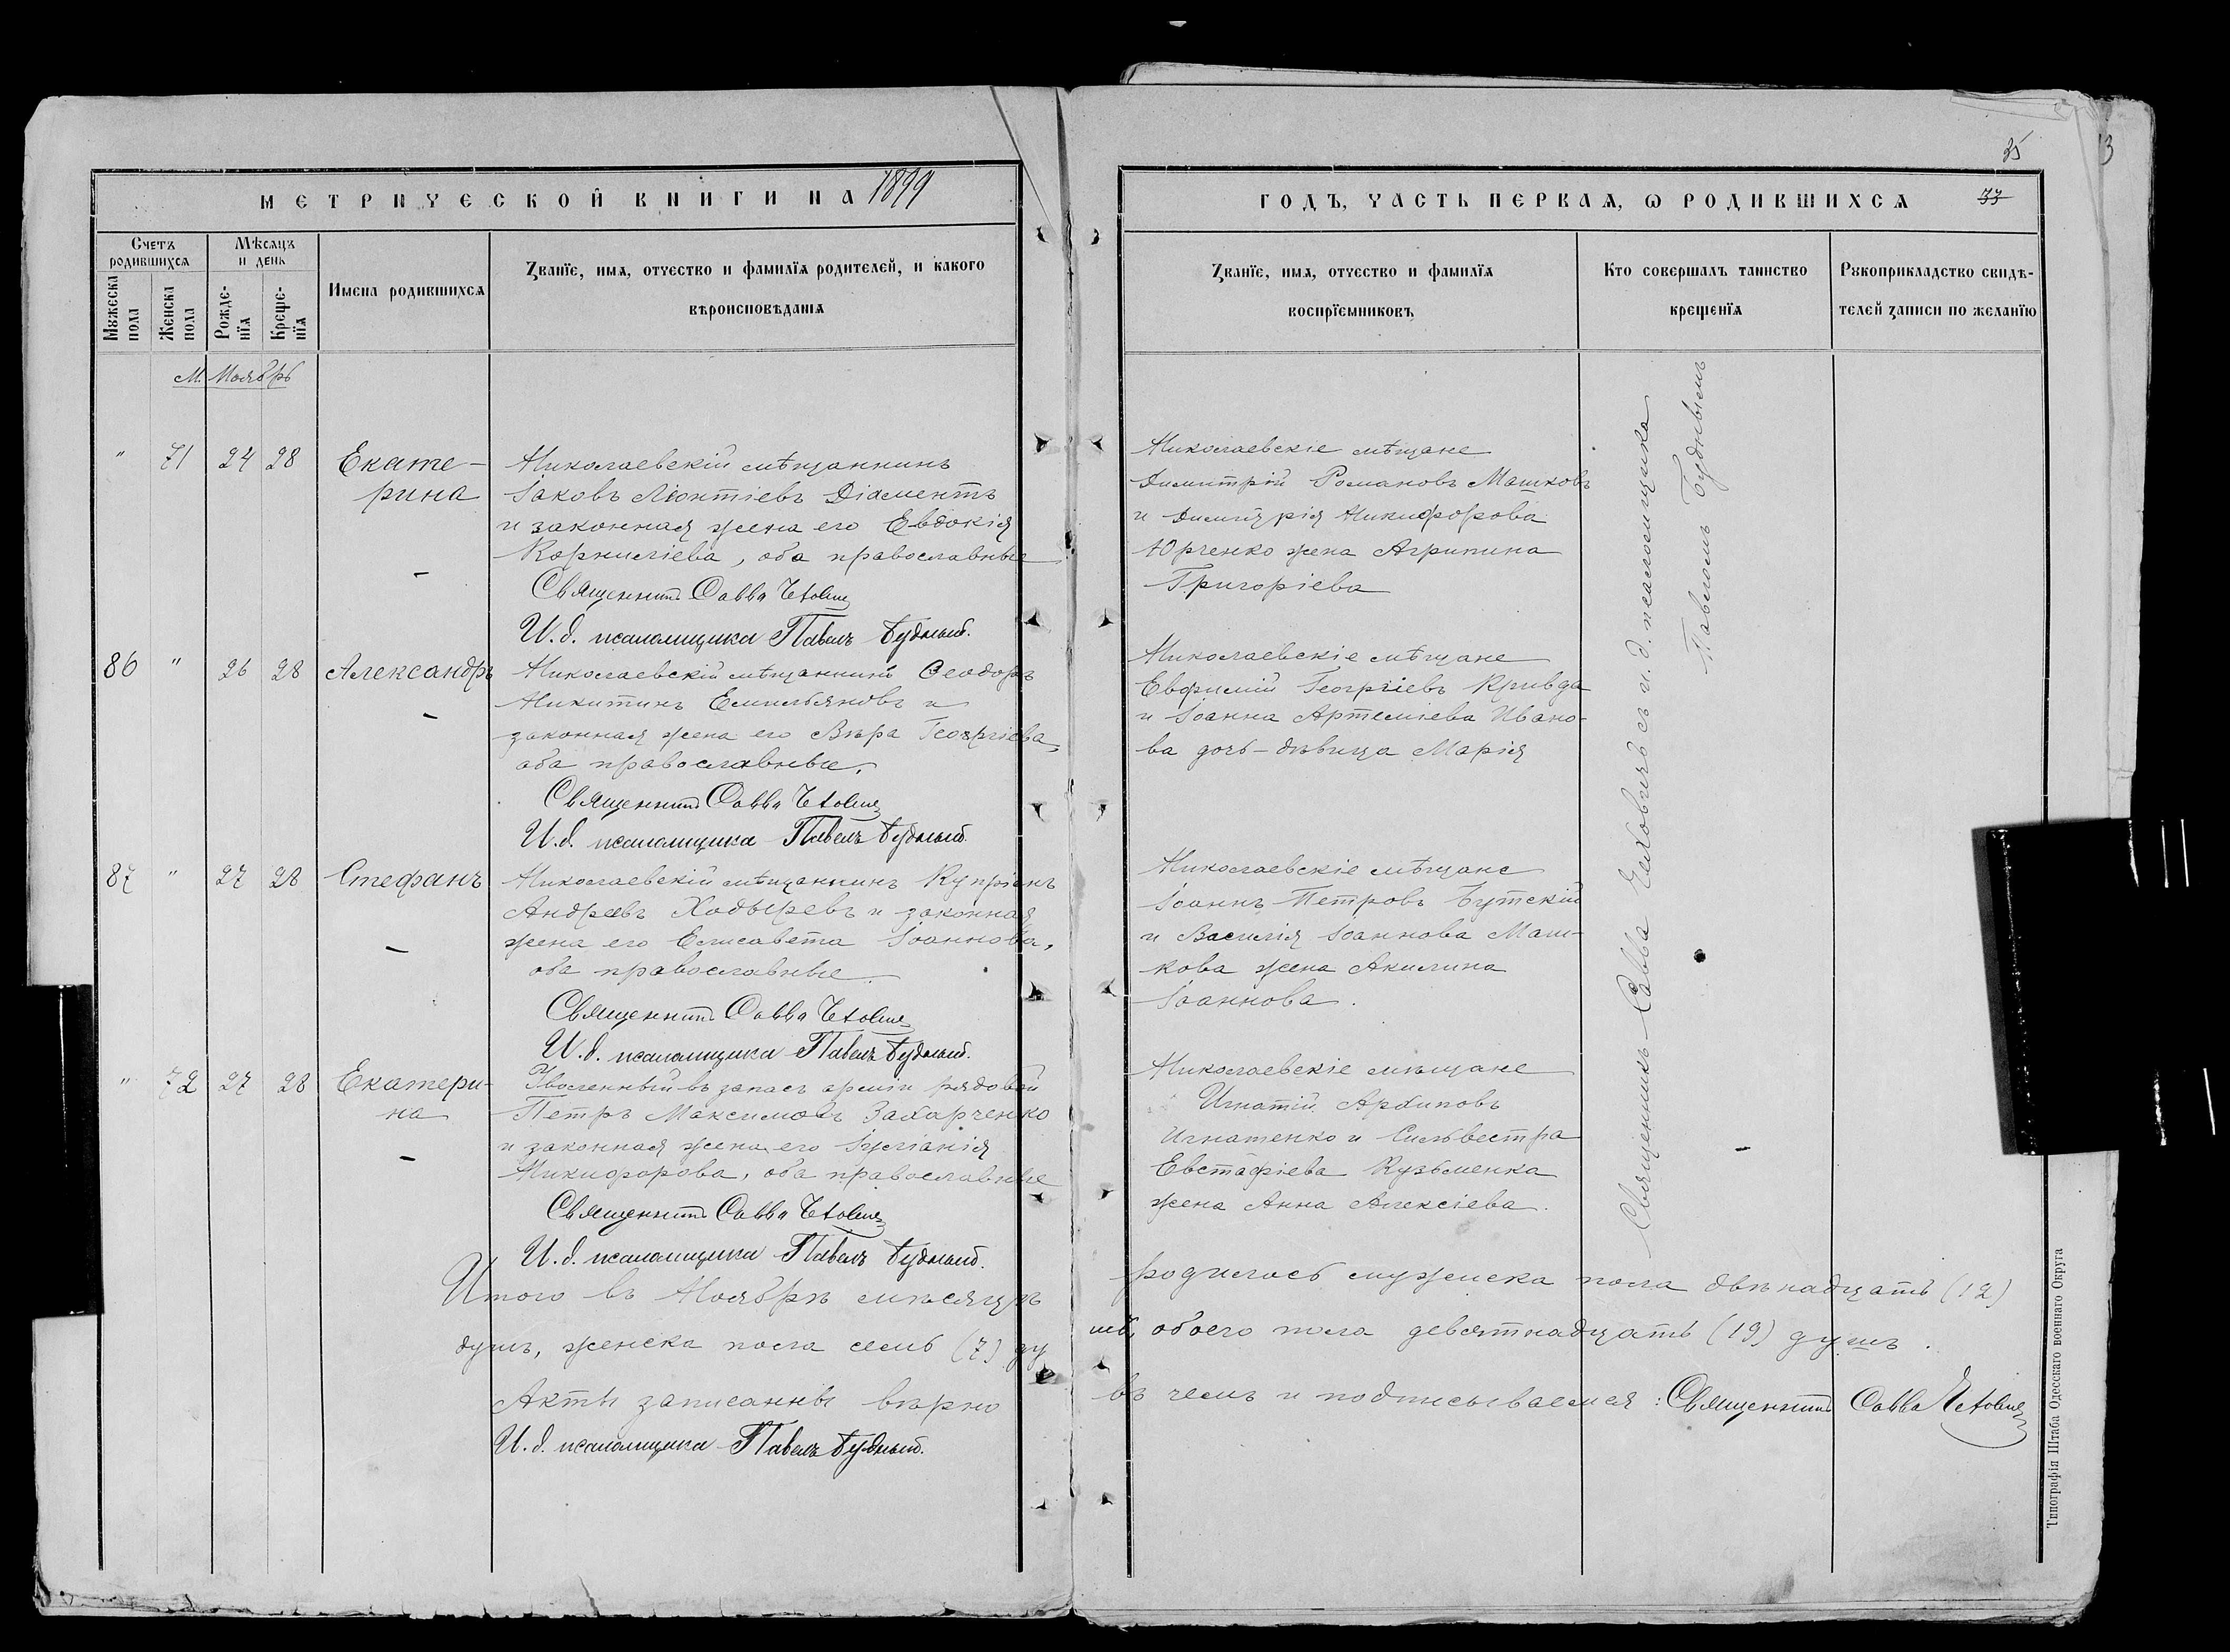 35
МЕТРИЧЕСКОЙ КНИГИ НА 1899
Счетъ родившихся
Мѣсяцъ и день
Мужеска пола
Женска пола
Рожденїя
Крещенїя
Имена родившихся
Званїе, имя, отчество и фамилїя родителей, и какого
вѣроисповѣданїя
М. Ноябрь
" 71 24 28 Екате-
рина
Николаевскій мѣщанинъ
Іаковъ Ліонтіевъ Діаментъ
и законная жена его Евдокія
Корнилiева, оба православные
Священникъ Савва
И. д. псаломщика Павелъ Будный.
86 " 26 28 Александръ
Николаевскій мѣщанинъ Ѳеодоръ
Никитинъ Емильяновъ и
законная жена его Вѣра Георгіева,
оба православные.
Священникъ Савва
И. д. псаломщика Павелъ Будный.
87 " 27 28 Стефанъ
Николаевскій мѣщанинъ Купріанъ
Андреевъ Ходыревъ и законная
жена его Елисавета Іоаннова,
оба православные.
Священникъ Савва
И. д. псаломщика Павелъ Будный.
" 72 27 28 Екатери-
на
Уволенный въ запасъ арміи рядовой
Петръ Максимовъ Захарченко
и законная жена его Іуліанія
Никифорова, оба православные
Священникъ Савва
И. д. псаломщика Павелъ Будный.
Итого въ Ноябрѣ мѣсяцѣ
душъ, женска пола семь (7) ду
Акты записанны вѣрно
И. д. псаломщика Павелъ Будный.
ГОДЪ, ЧАСТЬ ПЕРВАЯ, Ѡ РОДИВШИХСЯ
33
Званїе, имя, отчество и фамилїя
воспрїемниковъ
Кто совершалъ таинство
крещенїя
Рукоприкладство свидѣ-
телей записи по желанїю
Николаевскіе мѣщане
Димитрій Романовъ Машковъ
и Димитрія Никифорова
Юрченко жена Агрипина
Григоріева
Николаевскіе мѣщане
Евфимій Георгіевъ Кривда
и Іоанна Артеміева Ивано-
ва дочь-дѣвица Марія
Николаевскіе мѣщане
Іоаннъ Петровъ Бутскій
и Василія Іоаннова Маш-
кова жена Акилина
Іоаннова.
Николаевскіе мѣщане
Игнатій Архиповъ
Игнатенко и Сильвестра
Евстафіева Кузьменка
жена Анна Алексіева.
Священникъ Савва съ и. д. псаломщика
Павломъ Буднымъ
родилось мужеска пола двѣнадцать (12)
шъ, обоего пола девятнадцать (19) душъ.
въ чемъ и подписываемся: Священникъ Савва
Типографія Штаба Одесскаго военнаго Округа